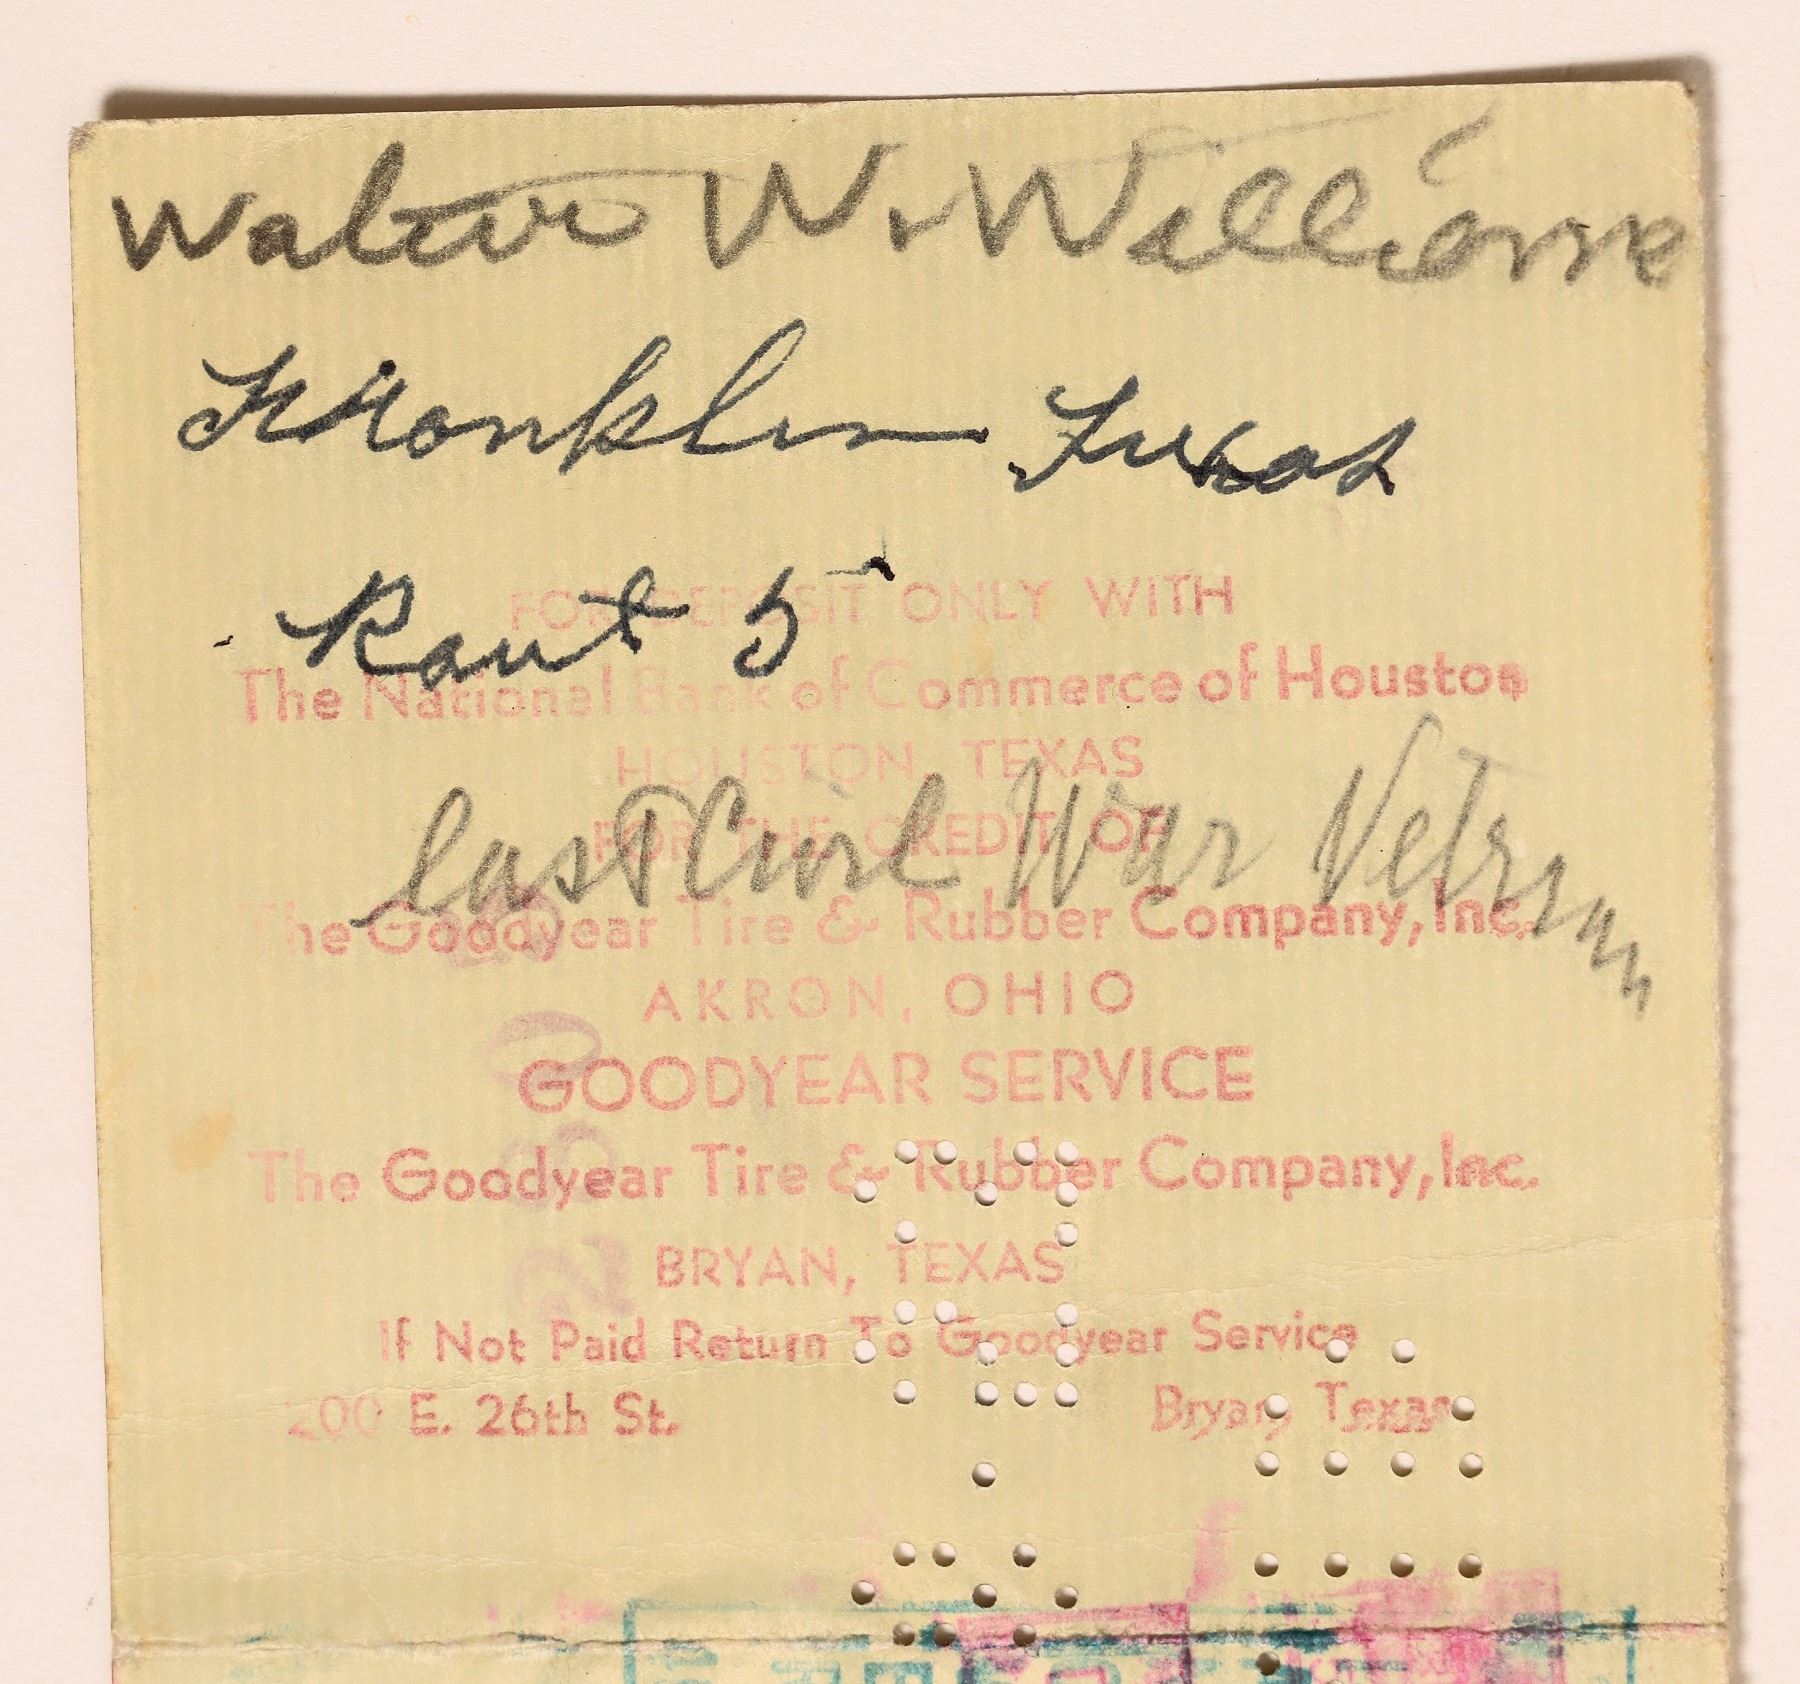 Walter W. Williams
Franklin Texas
Raut 5
FOR DEPOSIT ONLY WITH
The National Bank of Commerce of Houston
HOUSTON, TEXAS
last Civil War Vetran
FOR THE CREDIT OF
The Goodyear Tire & Rubber Company, Inc.
AKRON, OHIO
GOODYEAR SERVICE
The Goodyear Tire & Rubber Company, Inc.
BRYAN, TEXAS
If Not Paid Return To Goodyear Service
200 E. 26th St. Bryan, Texas